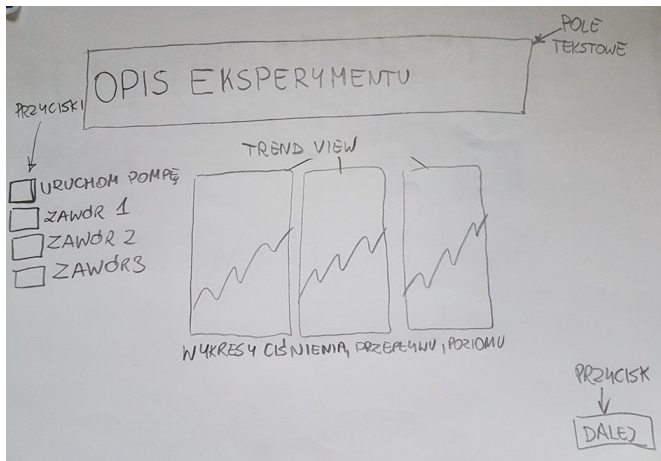 POLE
TEKSTOWE
OPIS EKSPERYMENTU
PRZYCISKI
TREND VIEW
URUCHOM POMPĘ
ZAWÓR 1
ZAWÓR 2
ZAWÓR 3
WYKRESY CIŚNIENIA, PRZEPŁYWU, POZIOMU
PRZYCISK
DALEJ